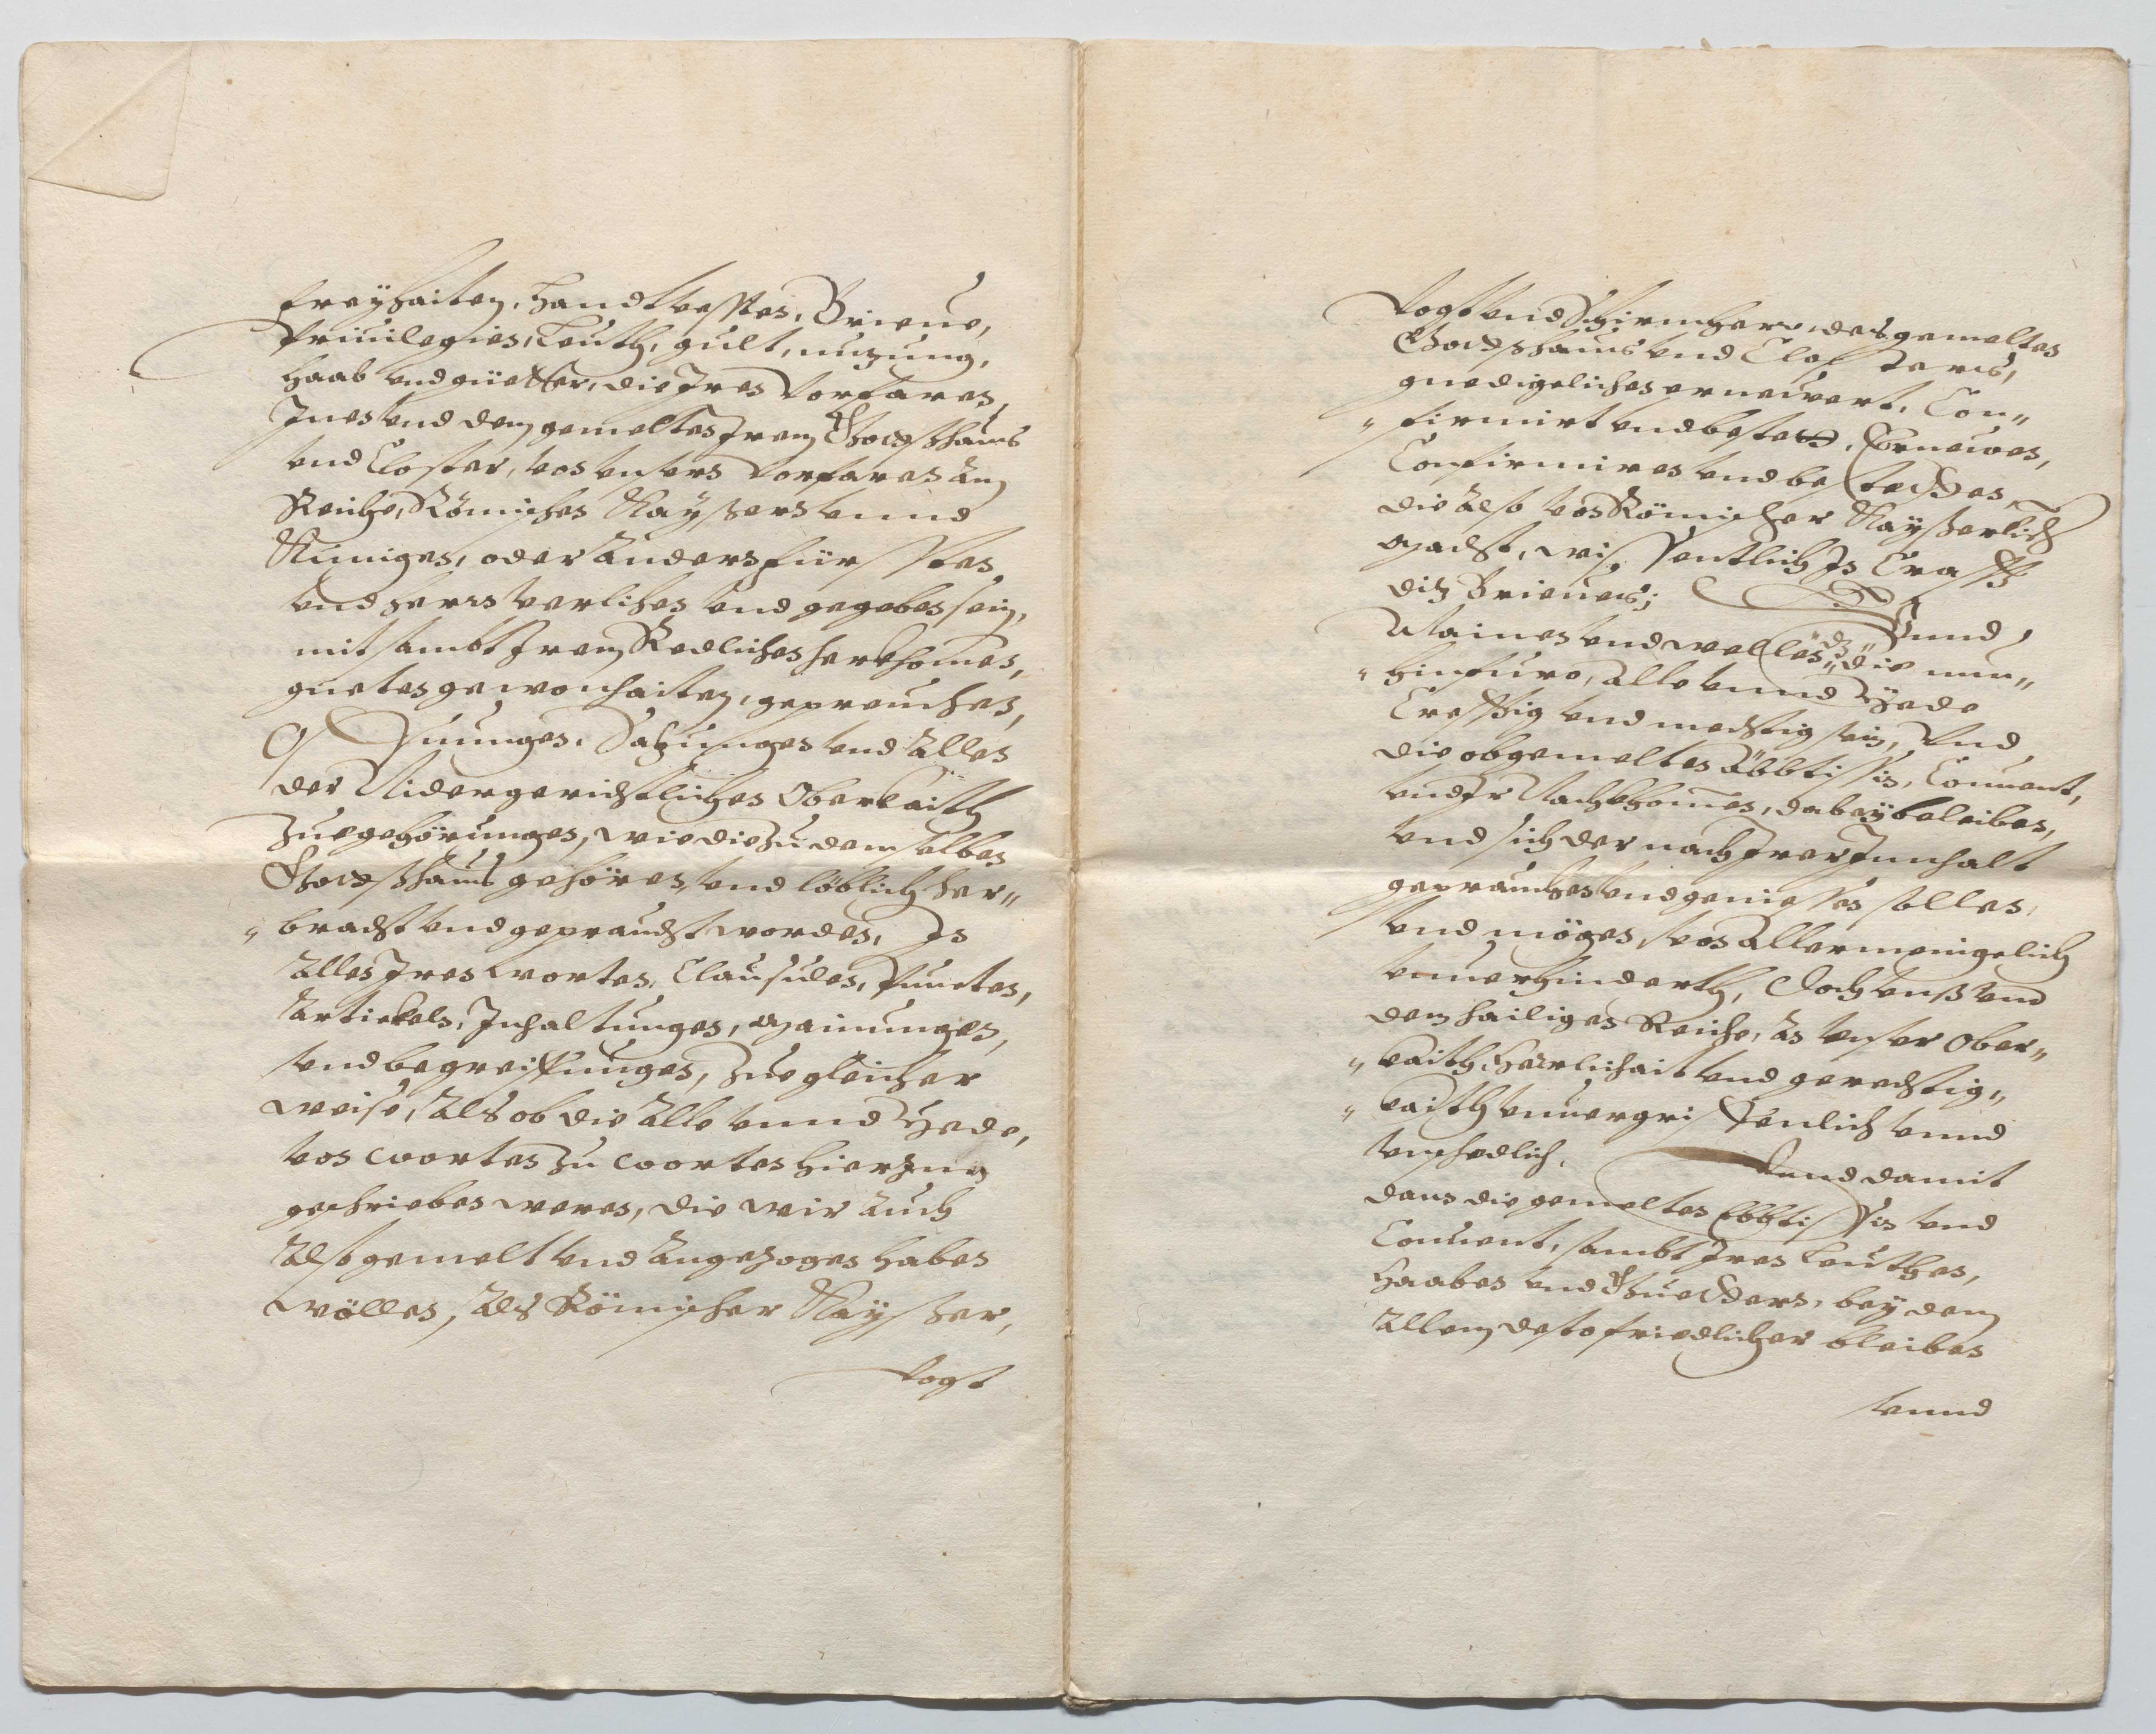 freyhaiten, Handtvessten, Brieue,
Priuilegien, Leuth, gült, nuzung,
Haab vnd güetter, die Jren Vorfaren,
Jnen vnd dem gemelten Jrem Gottshaus
vnd Closter, von vnsern Vorfaren am
Reiche, Römischen Kayssern vnnd
Kunigen, oder andern fürsten
vnd herrn verlihen vnd gegeben sein,
mit sambt Jrem Redlichen herkhomen,
gueten gewonhaiten, gepreuchen,
Ordnungen, Satzungen vnd allen
der Nidergerichtlichen Oberkaith
Zuegehörungen, wie die zu demselben
Gottshaus gehören, vnd löblich her„
„ bracht vnd gepraucht worden, Jn
allen Jren worten, Clausulen, Puncten,
Artickeln, Jnhaltungen, Mainungen,
vnd begreiffungen, Zue gleicher
weise, als ob die alle vnnd Yede,
von worten zu worten hierJnn
geschrieben weren, die wir auch
also gemelt vnd angezogen haben
wöllen, als Römischer Kaysser,
Vogt
Vogt vnd Schirmherr, des gemelten
Gottshaus vnd Closters,
gnedigelichen erneuert, Con„
„ firmirt vnd bestett, Erneuen,
Confirmiren vnd bestetten,
die also von Römischer Kayserlich
Macht, wissentlich Jn Crafft
ditz Brieues; Vnnd
Mainen vnd wellen, das die nun„
„ hinfuro, alle vnnd Yede
Crefftig vnd mechtig sein, Vnd
die obgemelten Äbbtissin, Conuent,
vnd Jr Nachkhomen, dabey beleiben,
vnd sich der nach Jrer Jnnhalt
geprauchen vnd geniessen sollen,
vnd mögen, von allermenigelich
vnuerhinderth, Doch vnß vnd
dem hailigen Reiche, an vnser Ober„
„ kaith, Herrlichait vnd gerechtig„
„ kaith vnuergriffenlich vnnd
vnschedlich. Vnnd damit
dann die gemelten Ebbtissin vnd
Conuent, sambt Jren Leuthen,
Haaben vnd Guettern, bey dem
allem desto friedlicher bleiben
vnnd